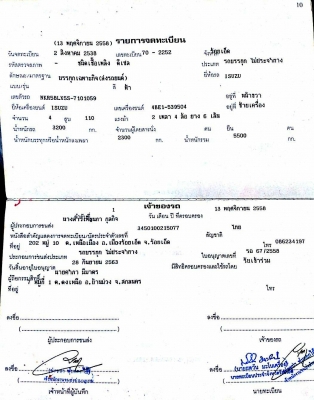 10
รายการจดทะเบียน
(13 พฤศจิกายน 2558)
วันจดทะเบียน 2 สิงหาคม 2538 เลขทะเบียน 70 - 2252 จังหวัด ร้อยเอ็ด
ชนิดเชื้อเพลิง ดีเซล ประเภท รถบรรทุก ไม่ประจำทาง
ลักษณะ/มาตรฐาน บรรทุกเฉพาะกิจ (ส่งรถยนต์) ยี่ห้อรถ ISUZU
แบบ/รุ่น สี ฟ้า
เลขตัวรถ NKR58LXSS-7101059 อยู่ที่ หน้าขวา
ยี่ห้อเครื่องยนต์ ISUZU เลขเครื่องยนต์ 4BE1-539504 อยู่ที่ ซ้ายเครื่อง
จำนวน 4 สูบ 110 แรงม้า 2 เพลา 4 ล้อ ยาง 6 เส้น
น้ำหนักรถ 3200 กก. จำนวนผู้โดยสารนั่ง คน ยืน คน
น้ำหนักบรรทุก 2300 กก. น้ำหนักรวม 5500 กก.
เจ้าของรถ
1 วัน เดือน ปี ที่ครอบครอง 13 พฤศจิกายน 2558
ผู้ประกอบการขนส่ง
3450100215077 สัญชาติ ไทย
ที่อยู่ 202 หมู่ 10 ต.เหนือเมือง อ.เมืองร้อยเอ็ด จ.ร้อยเอ็ด โทร 086234197
ประกอบการขนส่งประเภท รถบรรทุก ไม่ประจำทาง ใบอนุญาตเลขที่
วันสิ้นอายุใบอนุญาต 28 กันยายน 2563
ผู้ถือกรรมสิทธิ์
ที่อยู่ โทร
ลงชื่อ ลงชื่อ
ผู้ประกอบการขนส่ง เจ้าของรถ
ลงชื่อ ลงชื่อ
เจ้าหน้าที่ผู้บันทึก นายทะเบียน